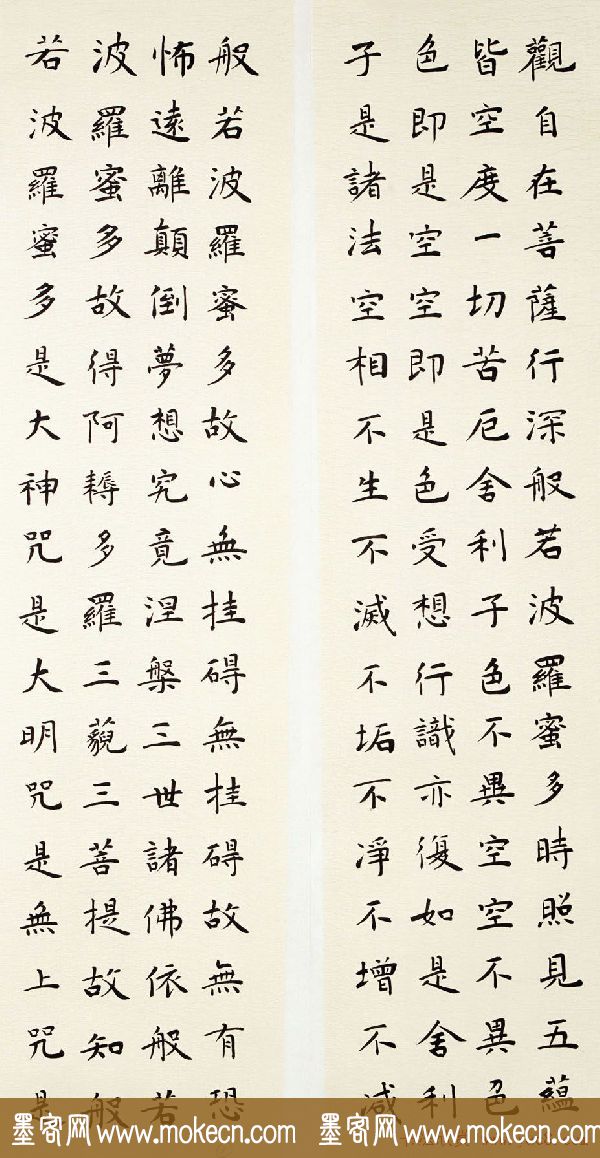 觀自在菩薩行深般若波羅蜜多時照見五蘊
皆空度一切苦厄舍利子色不異空空不異色
色即是空空即是色受想行識亦復如是舍利
子是諸法空相不生不滅不垢不淨不增不減
般若波羅蜜多故心無挂碍無挂碍故無有恐
怖遠離顛倒夢想究竟涅槃三世諸佛依般若
波羅蜜多故得阿耨多羅三藐三菩提故知般
若波羅蜜多是大神咒是大明咒是無上咒是
墨客网 www.mokecn.com 墨客网 www.mokecn.com